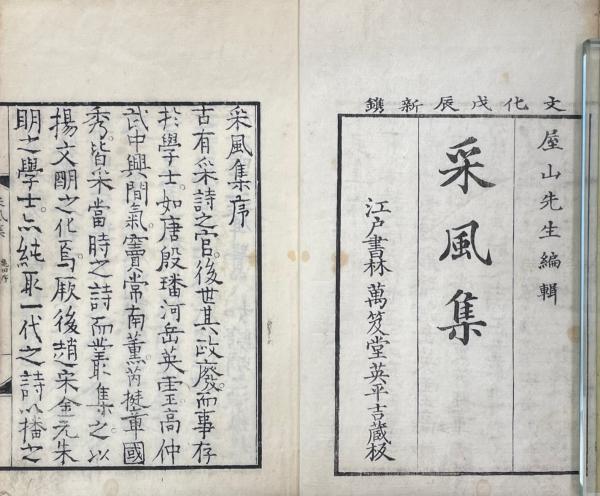 文化戊辰新鐫
屋山先生編輯
采風集
江戸書林 萬笈堂英平吉蔵板
采風集序
古有采詩之官。後世其政廢。而事存
於學士。如唐殷璠河岳英靈高仲
武中興間氣。竇常南薰。芮挺章國
秀。皆采當時之詩而叢集之。以
揚文明之化焉。厥後趙宋金元朱
明之學士。亦純取一代之詩以播之